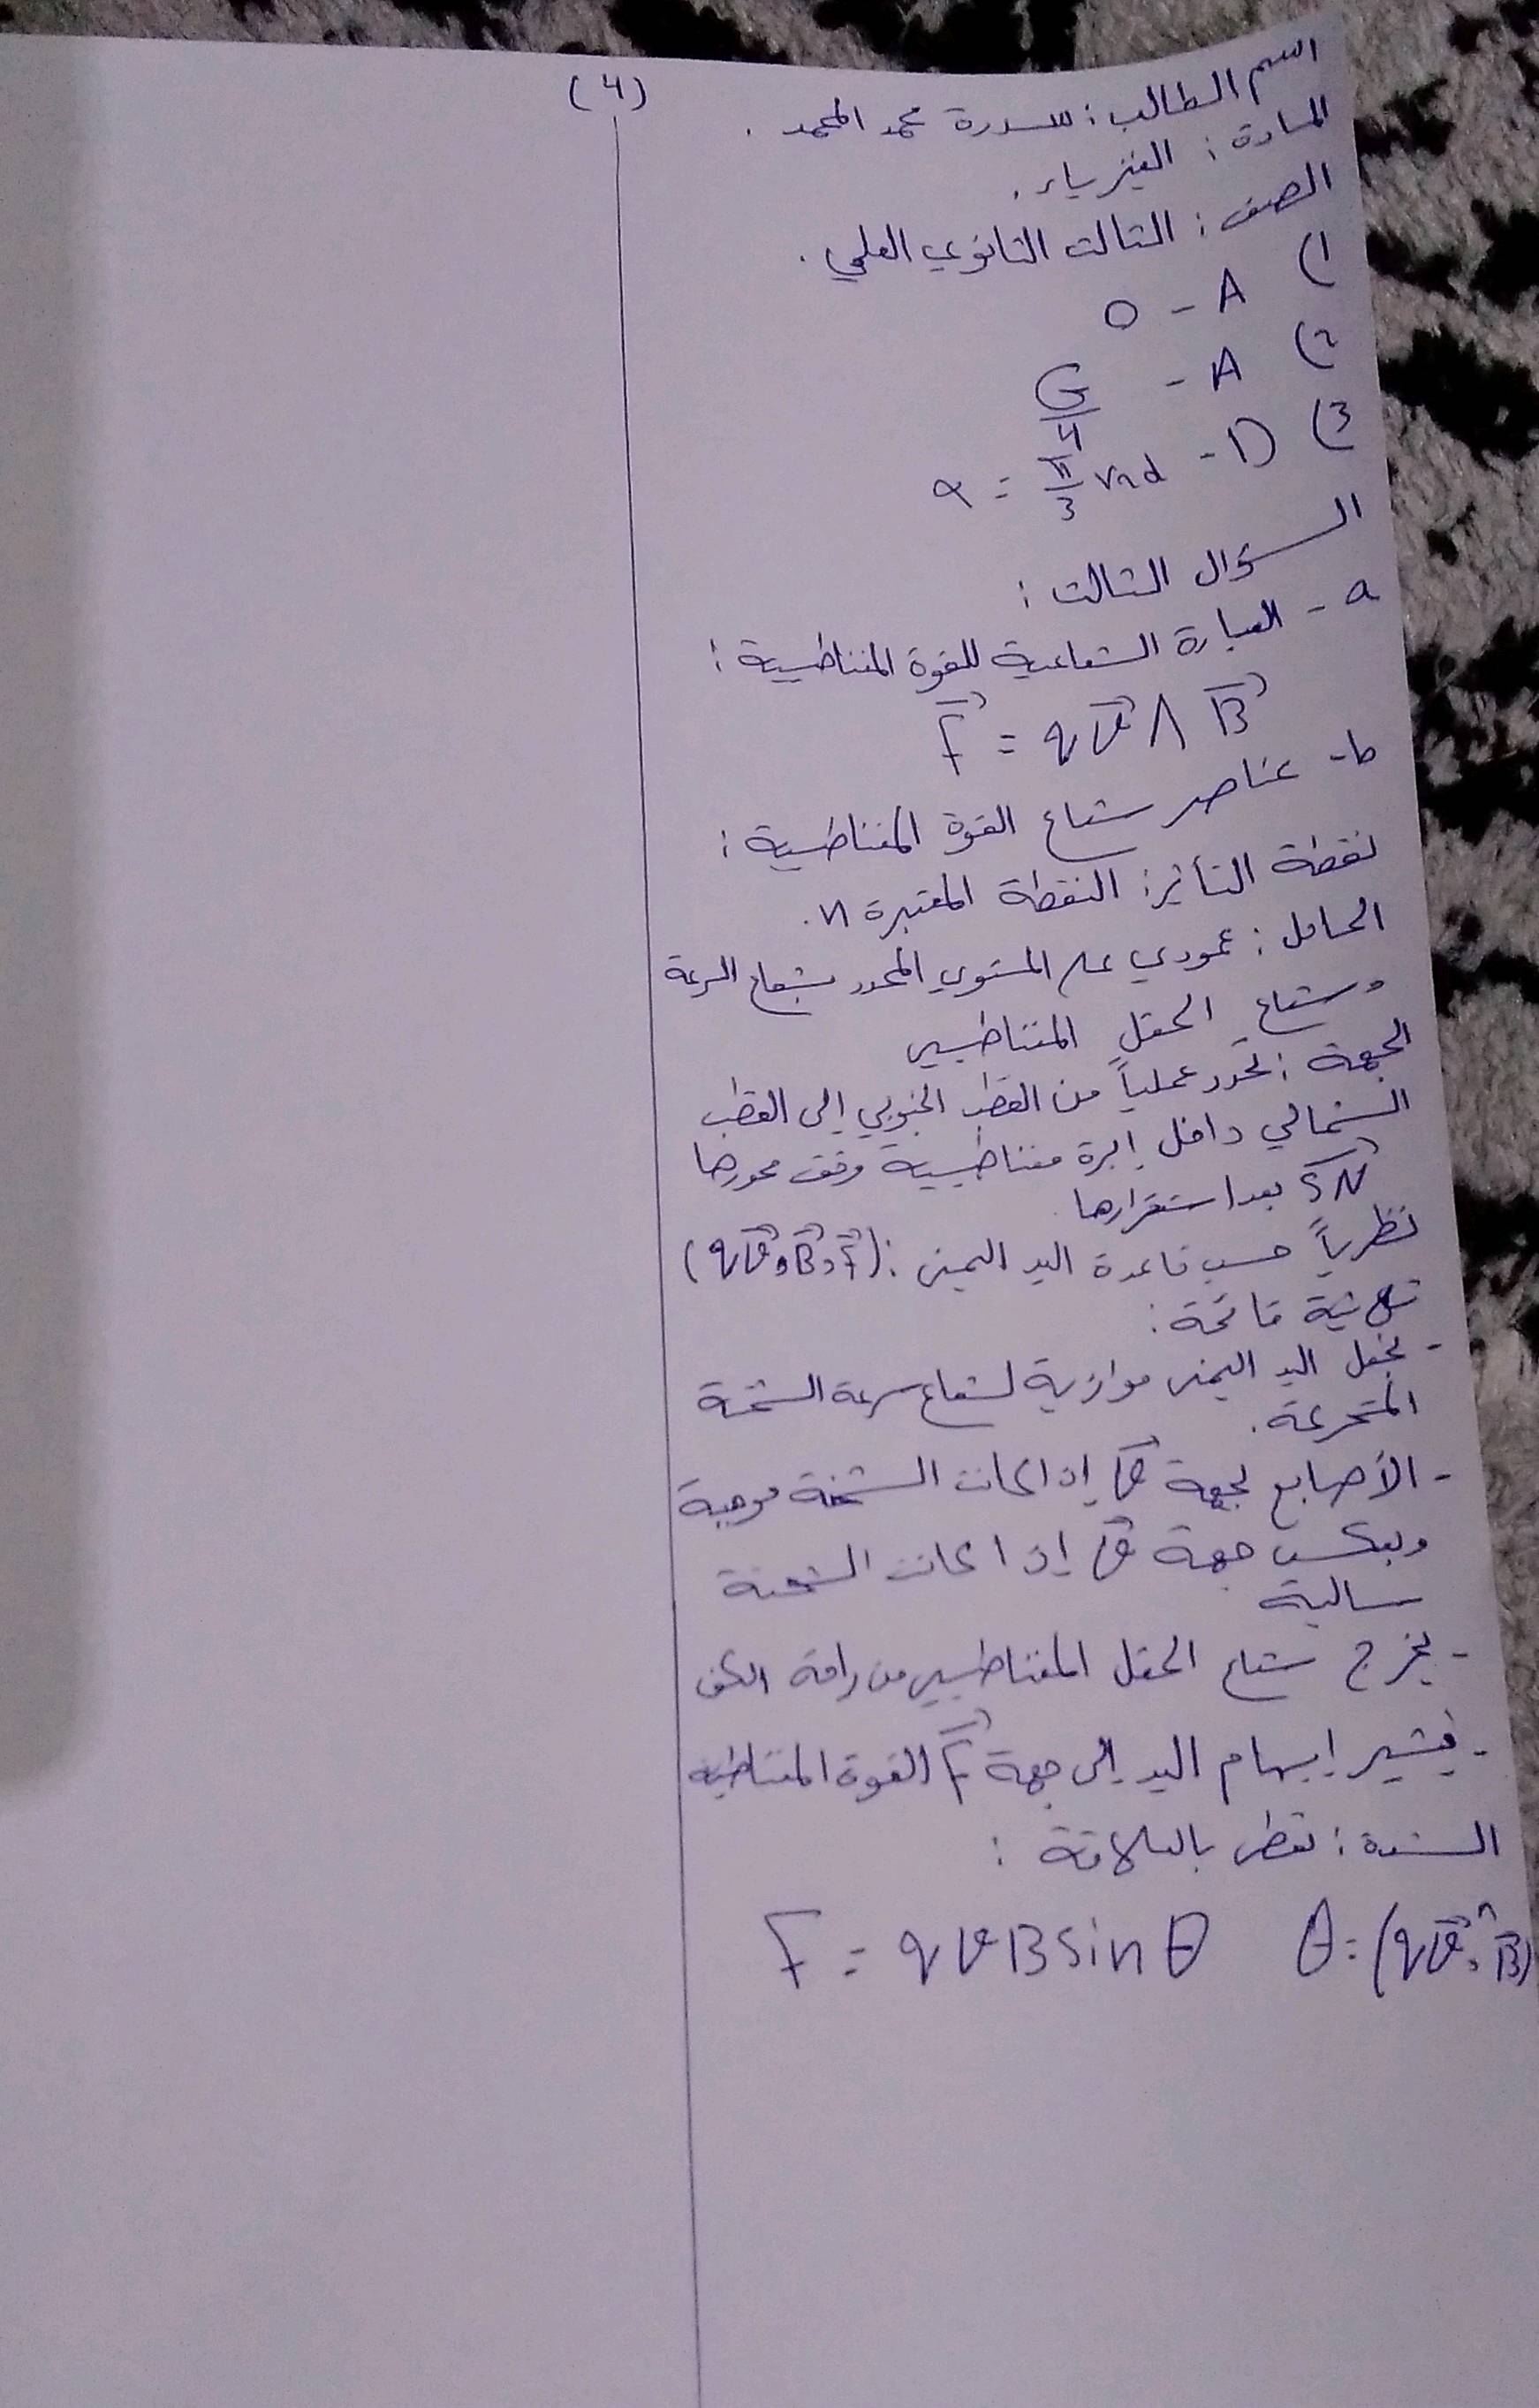 (4)
اسم الطالب: سدرة محمد المحمد.
المادة: الفيزياء.
الصف: الثالث الثانوي العلمي.
1) A - 0
2) A - G/4
3) D - α = π/3 rad
السؤال الثالث:
a - العبارة الشعاعية للقوة المغناطيسية:
F⃗ = q v⃗ ∧ B⃗
b - عناصر شعاع القوة المغناطيسية:
نقطة التأثير: النقطة المعتبرة n.
الحامل: عمودي على المستوي المحدد بشعاع السرعة
وشعاع الحقل المغناطيسي
الجهة: تحدد عملياً من القطب الجنوبي إلى القطب
الشمالي داخل إبرة مغناطيسية وفق محورها
SN⃗ بعد استقرارها.
نظرياً حسب قاعدة اليد اليمنى: (qv⃗, B⃗, F⃗)
ثلاثية قائمة:
- نجعل اليد اليمنى موازية لشعاع سرعة الشحنة
المتحركة.
- الأصابع بجهة v⃗ إذا كانت الشحنة موجبة
وبعكس جهة v⃗ إذا كانت الشحنة
سالبة
- يخرج شعاع الحقل المغناطيسي من راحة الكف
- فيشير إبهام اليد إلى جهة F⃗ القوة المغناطيسية
الشدة: تعطى بالعلاقة:
F = q v B sin θ θ = (qv⃗, B⃗)